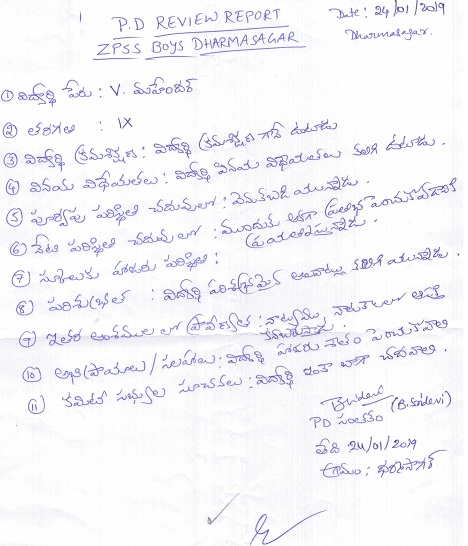 P.D REVIEW REPORT
ZPSS BOYS DHARMASAGAR
Date: 24/01/2019
Dharmasagar.
① విద్యార్థి పేరు : V. మహేందర్
② తరగతి : IX
③ విద్యార్థి క్రమశిక్షణ : విద్యార్థి క్రమశిక్షణ గానే ఉంటాడు
④ వినయ విధేయతలు : విద్యార్థి వినయ విధేయతలు కలిగి ఉంటాడు.
⑤ పూర్వపు పరిస్థితి చదువులో : వెనుకబడి యున్నాడు.
⑥ నేటి పరిస్థితి చదువులో : ముందుకు
ప్రయత్నిస్తున్నాడు.
⑦ స్కూలుకు హాజరు పరిస్థితి :
⑧ పరిశుభ్రత : విద్యార్థి పరిశుభ్రమైన అలవాట్లు కలిగి యున్నాడు.
⑨ ఇతర అంశముల లో ప్రావీణ్యత : నాట్యము, నాటకాలలో ఆసక్తి
కనబరుస్తాడు.
⑩ అభిప్రాయాలు / సలహాలు : విద్యార్థి హాజరు శాతం పెంచుకోవాలి
⑪ కమిటీ సభ్యుల సూచనలు : విద్యార్థి ఇంకా బాగా చదవాలి.
(B. Sridevi)
PD సంతకం
తేది 24/01/2019
గ్రామం : ధర్మసాగర్